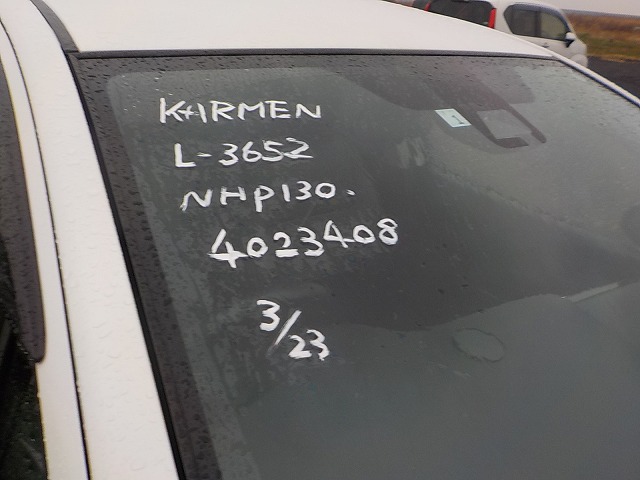 KARMEN
L-3652
NHP130.
4023408
3/23